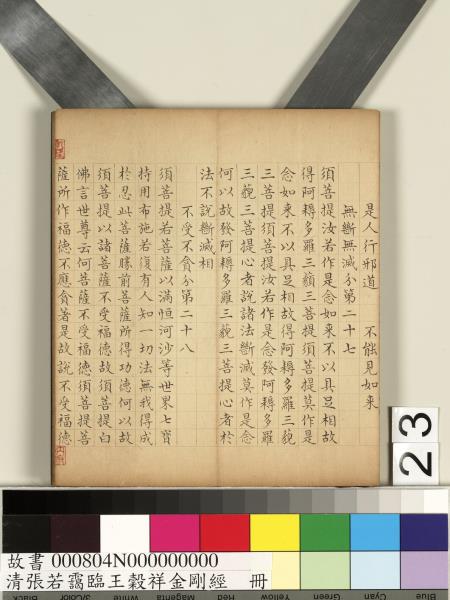 是人行邪道　不能見如來
無斷無滅分第二十七
須菩提汝若作是念如來不以具足相故
得阿耨多羅三藐三菩提須菩提莫作是
念如來不以具足相故得阿耨多羅三藐
三菩提須菩提汝若作是念發阿耨多羅
三藐三菩提心者說諸法斷滅莫作是念
何以故發阿耨多羅三藐三菩提心者於
法不說斷滅相
不受不貪分第二十八
須菩提若菩薩以滿恒河沙等世界七寶
持用布施若復有人知一切法無我得成
於忍此菩薩勝前菩薩所得功德何以故
須菩提以諸菩薩不受福德故須菩提白
佛言世尊云何菩薩不受福德須菩提菩
薩所作福德不應貪著是故說不受福德
23
故書 000804N000000000
清張若靄臨王穀祥金剛經　冊
Black
3/Color
White
Magenta
Red
Yellow
Green
Cyan
Blue